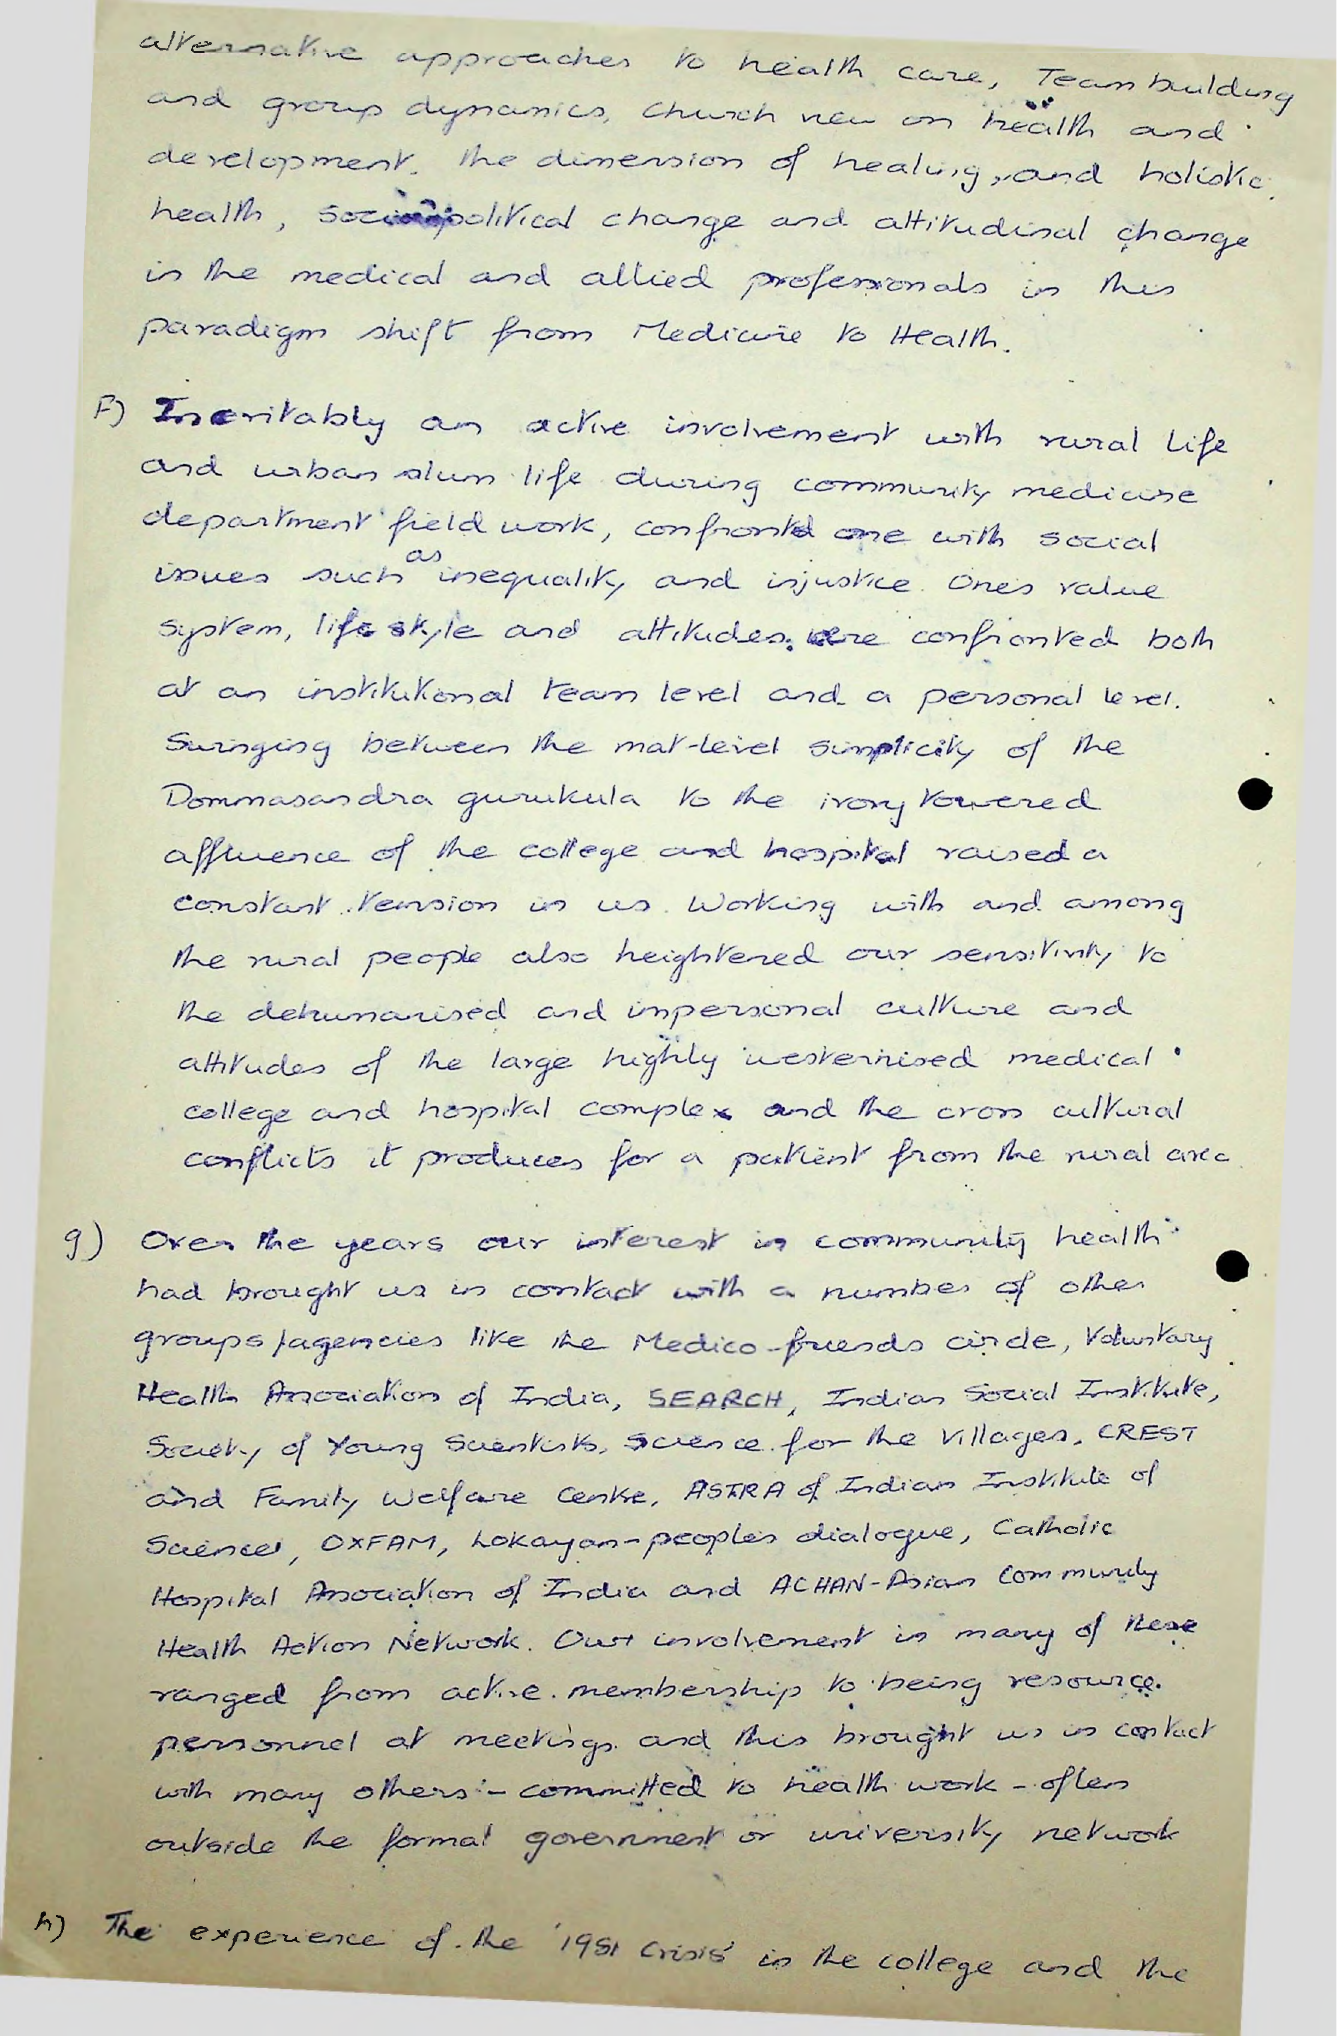 alternative approaches to health care, Team building
and group dynamics, Church view on health and
development. The dimension of healing, and holistic
health, socio political change and attitudinal change
in the medical and allied professionals in this
paradigm shift from Medicine to Health.
F) Inevitably an active involvement with rural life
and urban slum life during community medicine
department field work, confronted one with social
issues such as inequality and injustice. Ones value
system, life style and attitudes were confronted both
at an institutional team level and a personal level.
Swinging between the mat-level simplicity of the
Dommasandra gurukula to the ivory towered
affluence of the college and hospital raised a
constant tension in us. Working with and among
the rural people also heightened our sensitivity to
the dehumanised and impersonal culture and
attitudes of the large highly westernised medical
college and hospital complex and the cross cultural
conflicts it produces for a patient from the rural area
g) Over the years our interest in community health
had brought us in contact with a number of other
groups/agencies like the Medico-friends circle, Voluntary
Health Association of India, SEARCH, Indian Social Institute,
Society of Young Scientists, Science for the Villages, CREST
and Family Welfare Centre, ASTRA of Indian Institute of
Science, OXFAM, Lokayan-peoples dialogue, Catholic
Hospital Association of India and ACHAN-Asian Community
Health Action Network. Our involvement in many of these
ranged from active membership to being resource
personnel at meetings and this brought us in contact
with many others - committed to health work - often
outside the formal government or university network
h) The experience of the '1981 Crisis' in the college and the